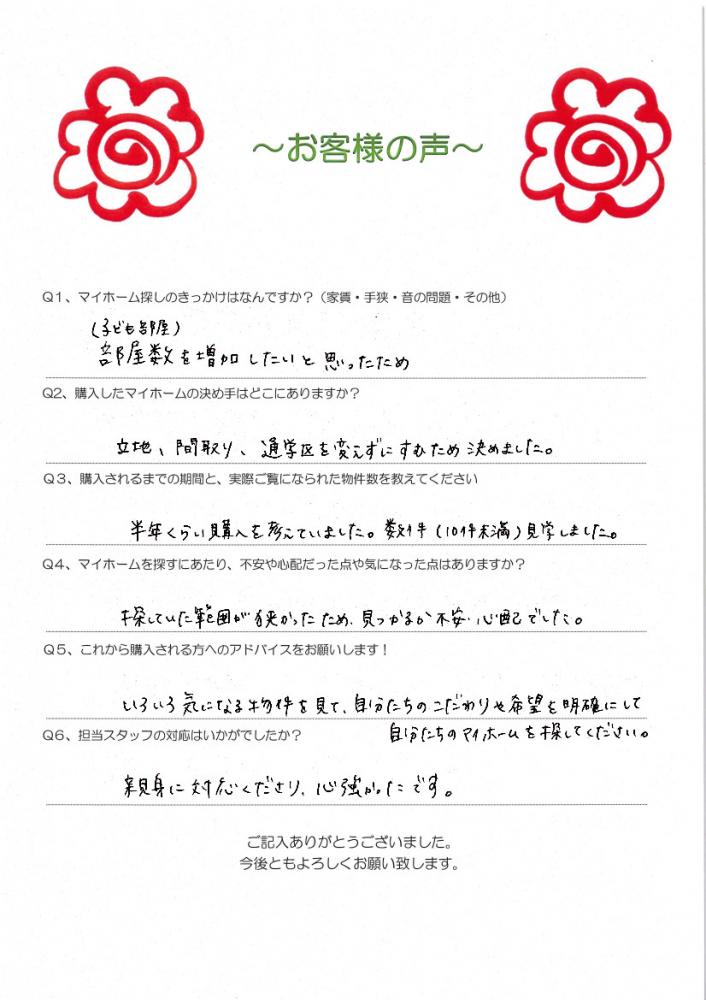 ～お客様の声～
Q１、マイホーム探しのきっかけはなんですか？（家賃・手狭・音の問題・その他）
(子ども部屋)
部屋数を増加したいと思ったため
Q2、購入したマイホームの決め手はどこにありますか？
立地、間取り、通学区を変えずにすむため決めました。
Q３、購入されるまでの期間と、実際ご覧になられた物件数を教えてください
半年くらい購入を考えていました。数件(10件未満)見学しました。
Q４、マイホームを探すにあたり、不安や心配だった点や気になった点はありますか？
探していた範囲が狭かったため、見つかるか不安・心配でした。
Q５、これから購入される方へのアドバイスをお願いします！
いろいろ気になる物件を見て、自分たちのこだわりや希望を明確にして
自分たちのマイホームを探してください。
Q６、担当スタッフの対応はいかがでしたか？
親身に対応くださり、心強かったです。
ご記入ありがとうございました。
今後ともよろしくお願い致します。